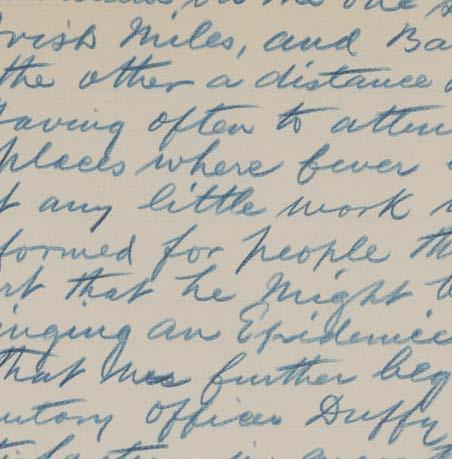 one
Irish Miles, and Ba
the other a distance
Having often to atten
places where fever
t any little work
formed for people th
rt that he Might
inging an Epidemic
that further beg
utory officer Duffy